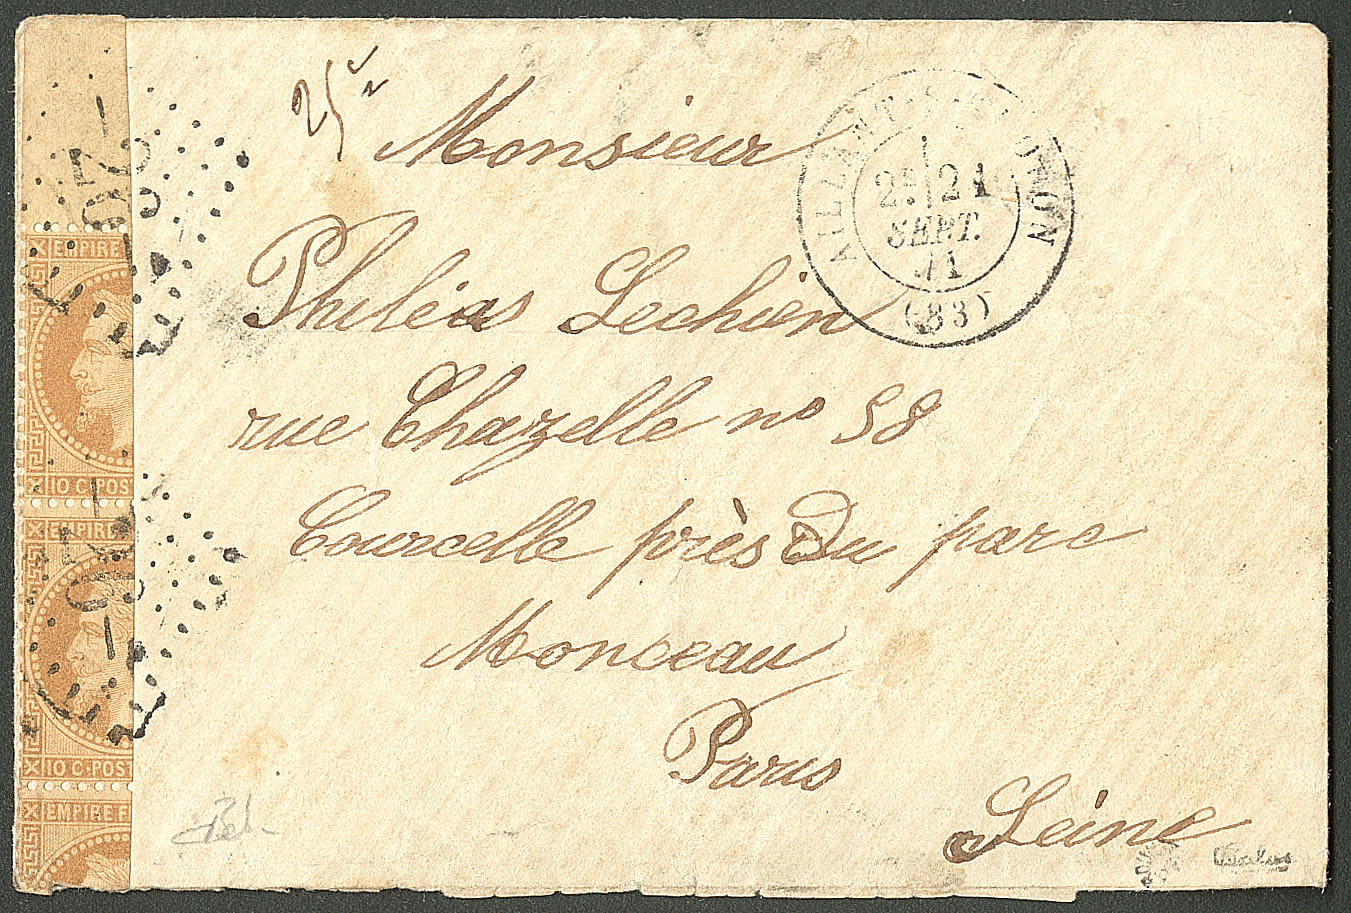 25c
Monsieur
Philéas Lechien
rue Chazelle no 58
Courcelle près Du parc
Monceau
Paris
Seine
21
SEPT.
71
(83)
EMPIRE
10 C·POS
EMPIRE
10 C·POS
EMPIRE F